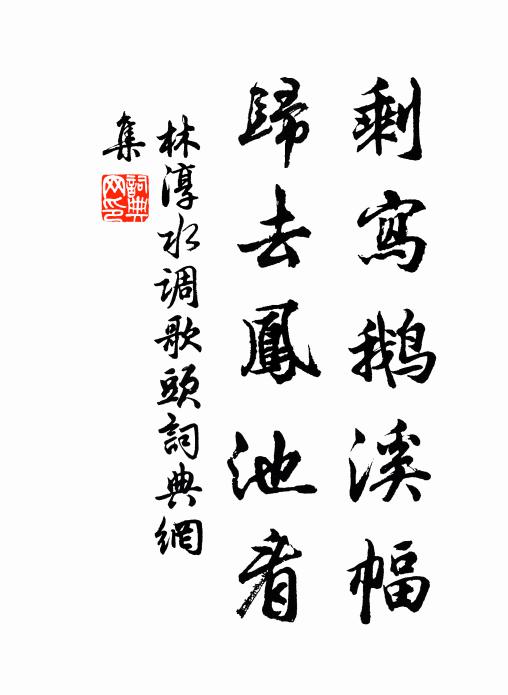 剩寫鵝溪幅
歸去鳳池看
林淳水调歌頭詞典網
集
詞典网印